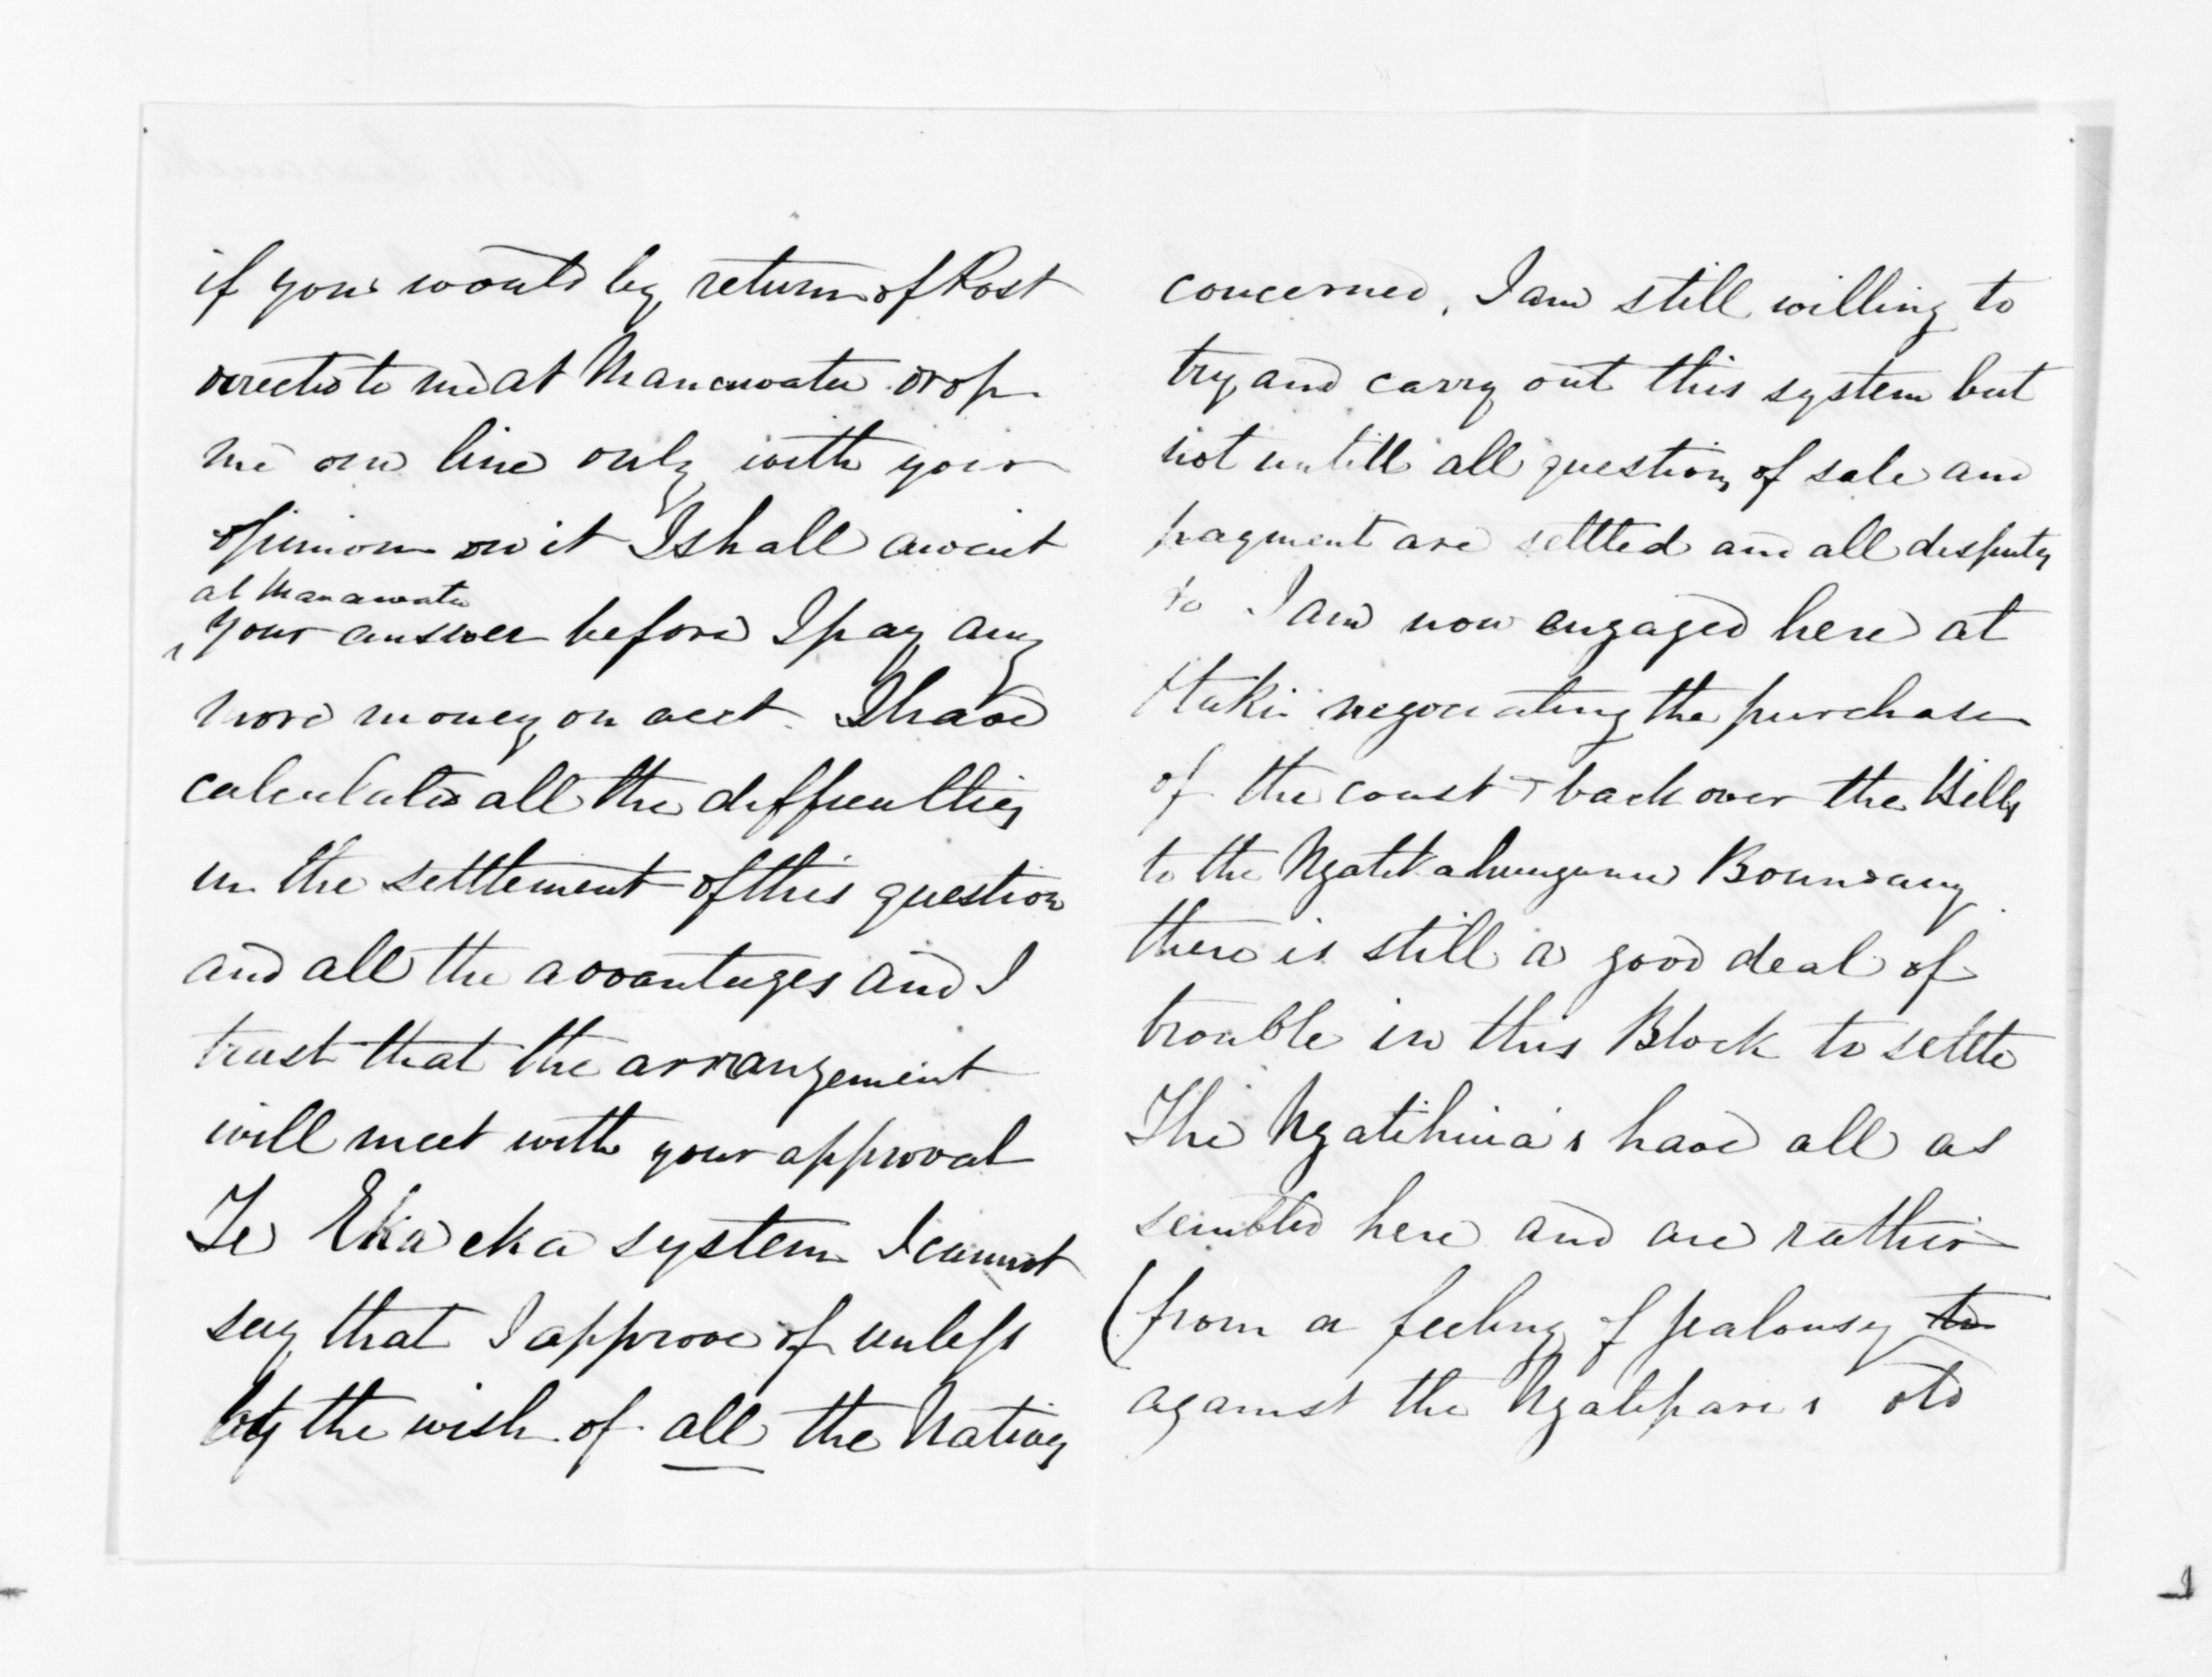 if you would by return of Post
directed to me at Manawatu drop
me one line only with your
opinion on it I shall await
at Manawatu
your answer before I pay any
more money on acct. I have
calculated all the difficulties
in the settlement of this question
and all the advantages and I
trust that the arrangement
will meet with your approval
Te Eka eka system I cannot
say that I approve of unless
by the wish of all the Natives
concerned. I am still willing to
try and carry out this system but
not untill all questions of sale and
payment are settled and all disputes
I am now engaged here at
Otaki negociating the purchase
of the coast & back over the Hills
to the Ngatikahungunu Boundary
there is still a good deal of
trouble in this Block to settle
The Ngatihuia's have all as
sembled here and are rather
(from a feeling of jealousy to
against the Ngatipare's old